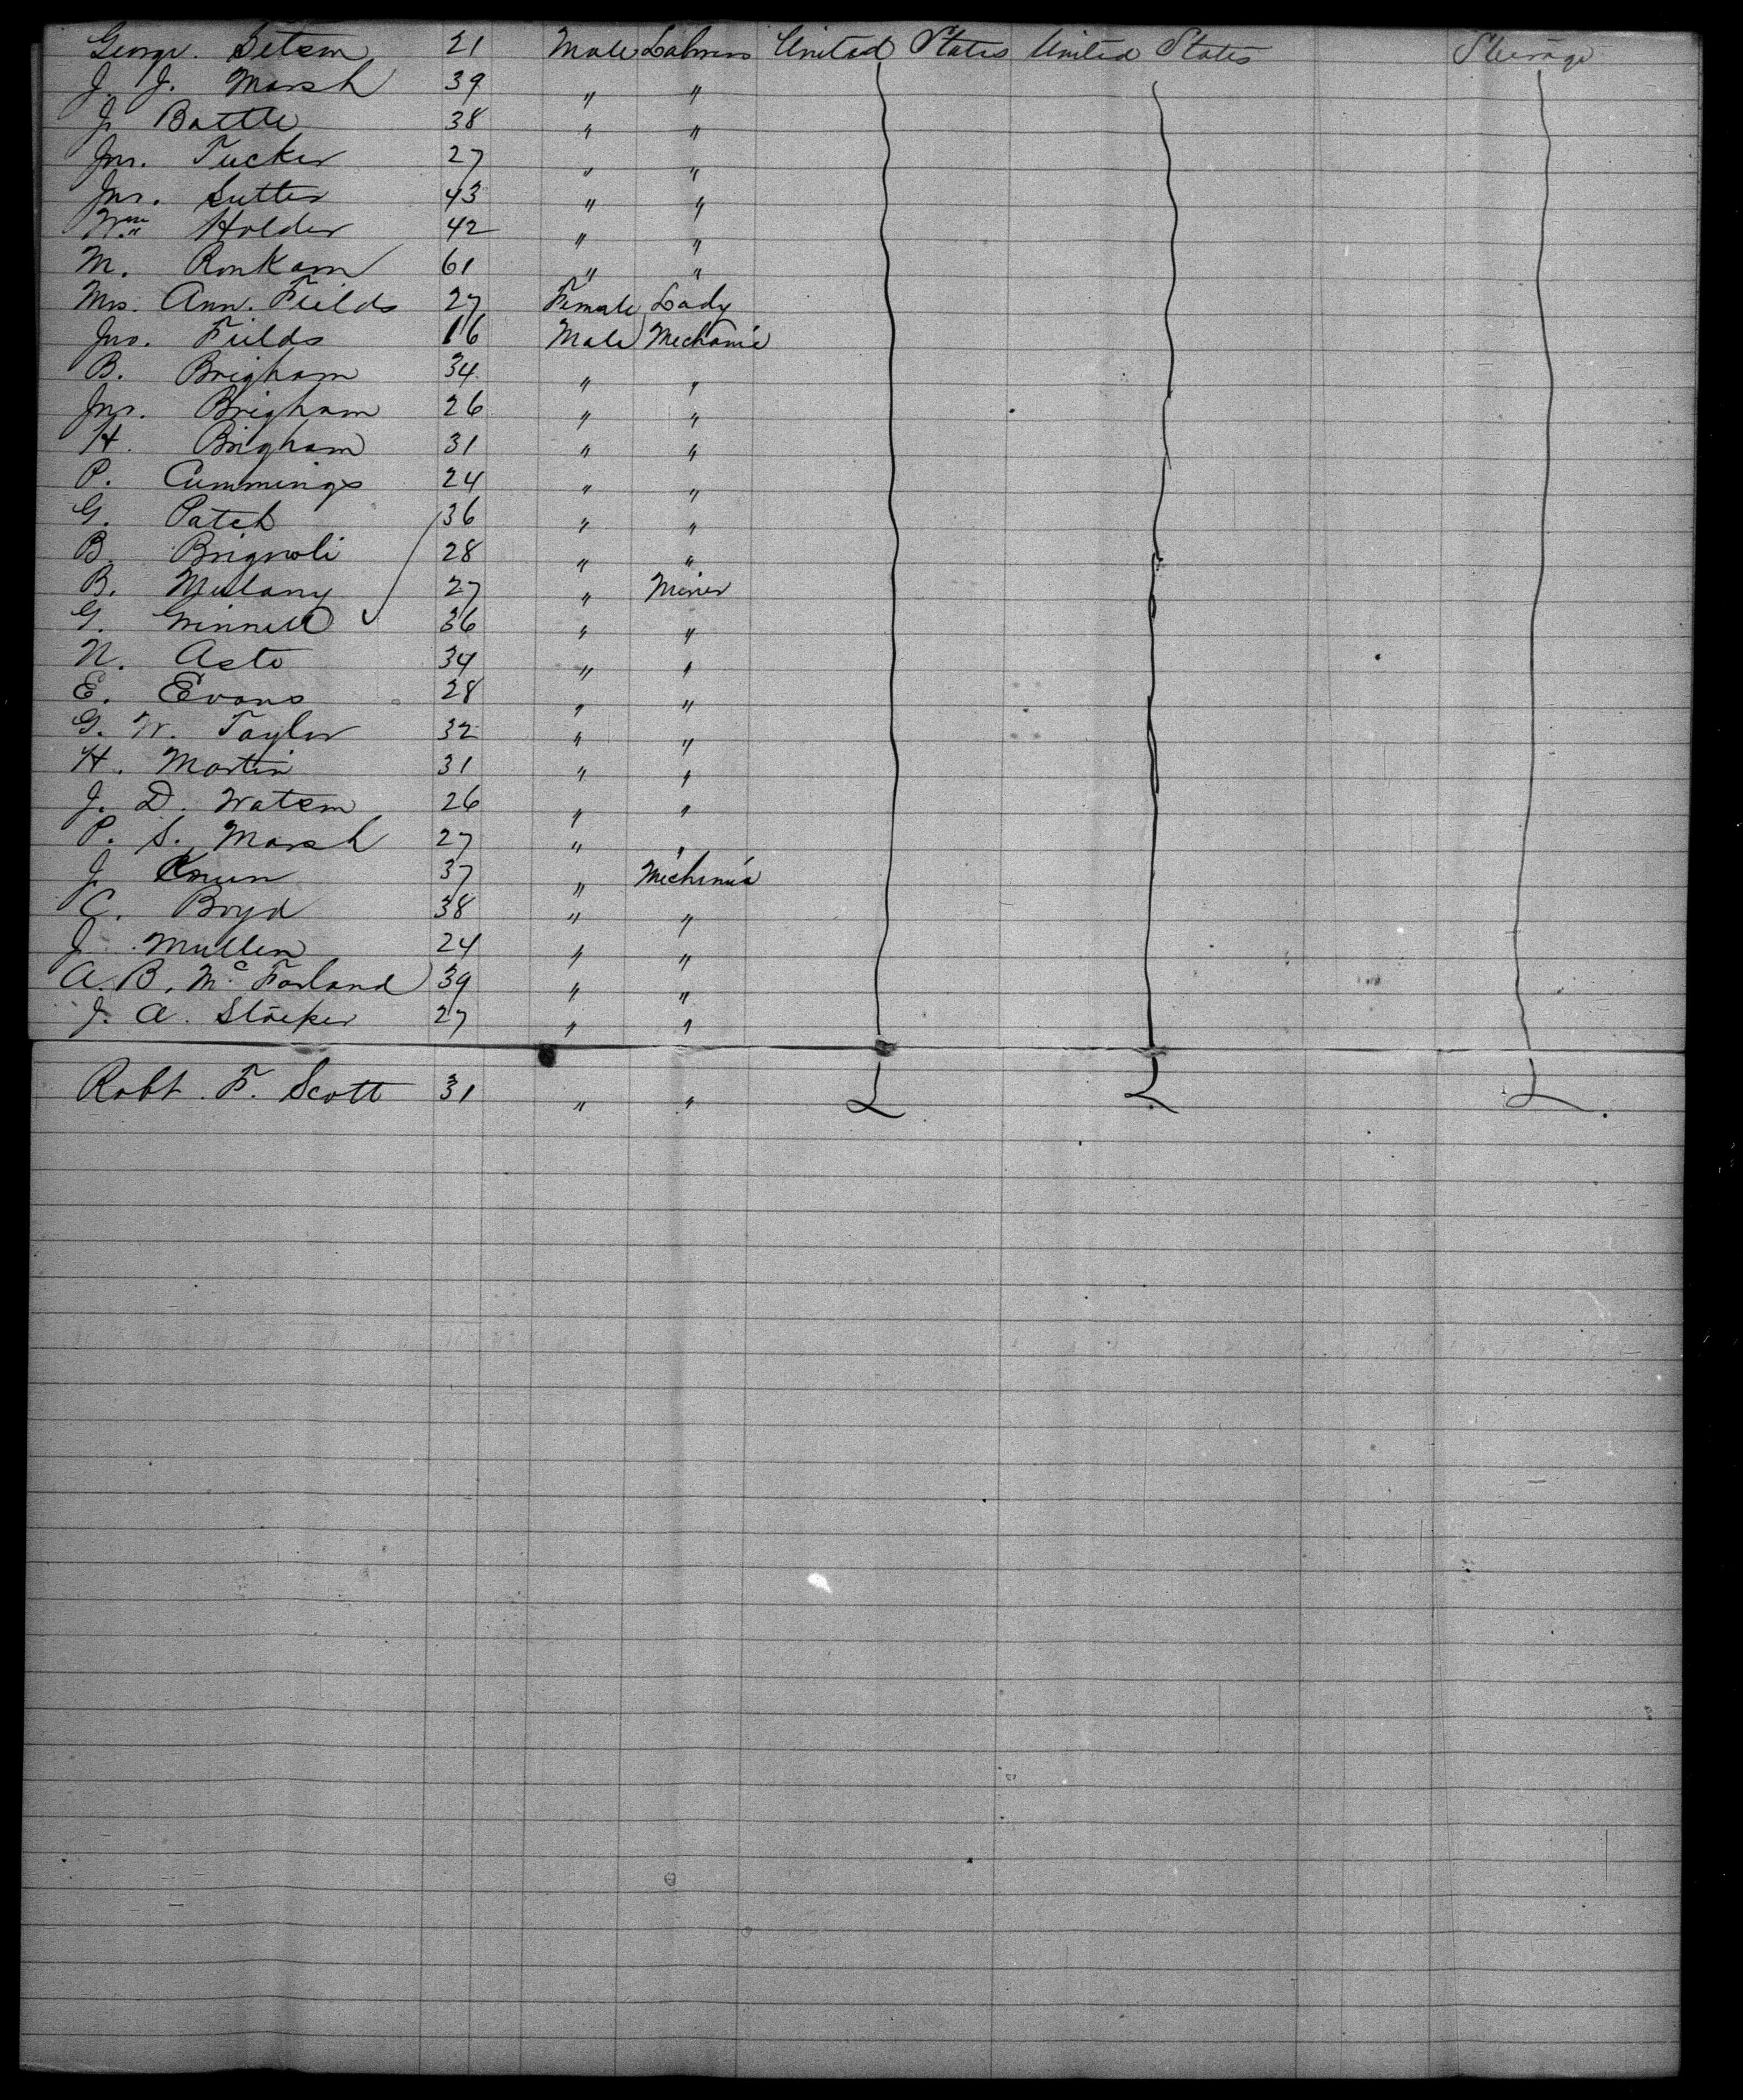 George. Setson 21 Male Laborer United States United States Steerage
J. J. Marsh 39 " "
J. Battle 38 " "
Jno. Tucker 27 " "
Jno. Sutter 43 " "
Wm Holder 42 " "
M. Ronkam 61 " "
Mrs. Ann. Fields 27 Female Lady
Jno. Fields 16 Male Mechanic
B. Brigham 34 " "
Jno. Brigham 26 " "
H. Brigham 31 " "
P. Cummings 24 " "
G. Patch 36 " "
B. Brignoli 28 " "
B. Mulany 27 " Miner
G. Grinnell 36 " "
N. Asto 34 " "
E. Evans 28 " "
G. W. Taylor 32 " "
H. Martin 31 " "
J. D. Watson 26 " "
P. S. Marsh 27 " "
J. 37 " Mechanic
C. Boyd 38 " "
J. Mullen 24 " "
A. B. Mc Farland 39 " "
J. A. 27 " "
Robt. F. Scott 31 " "